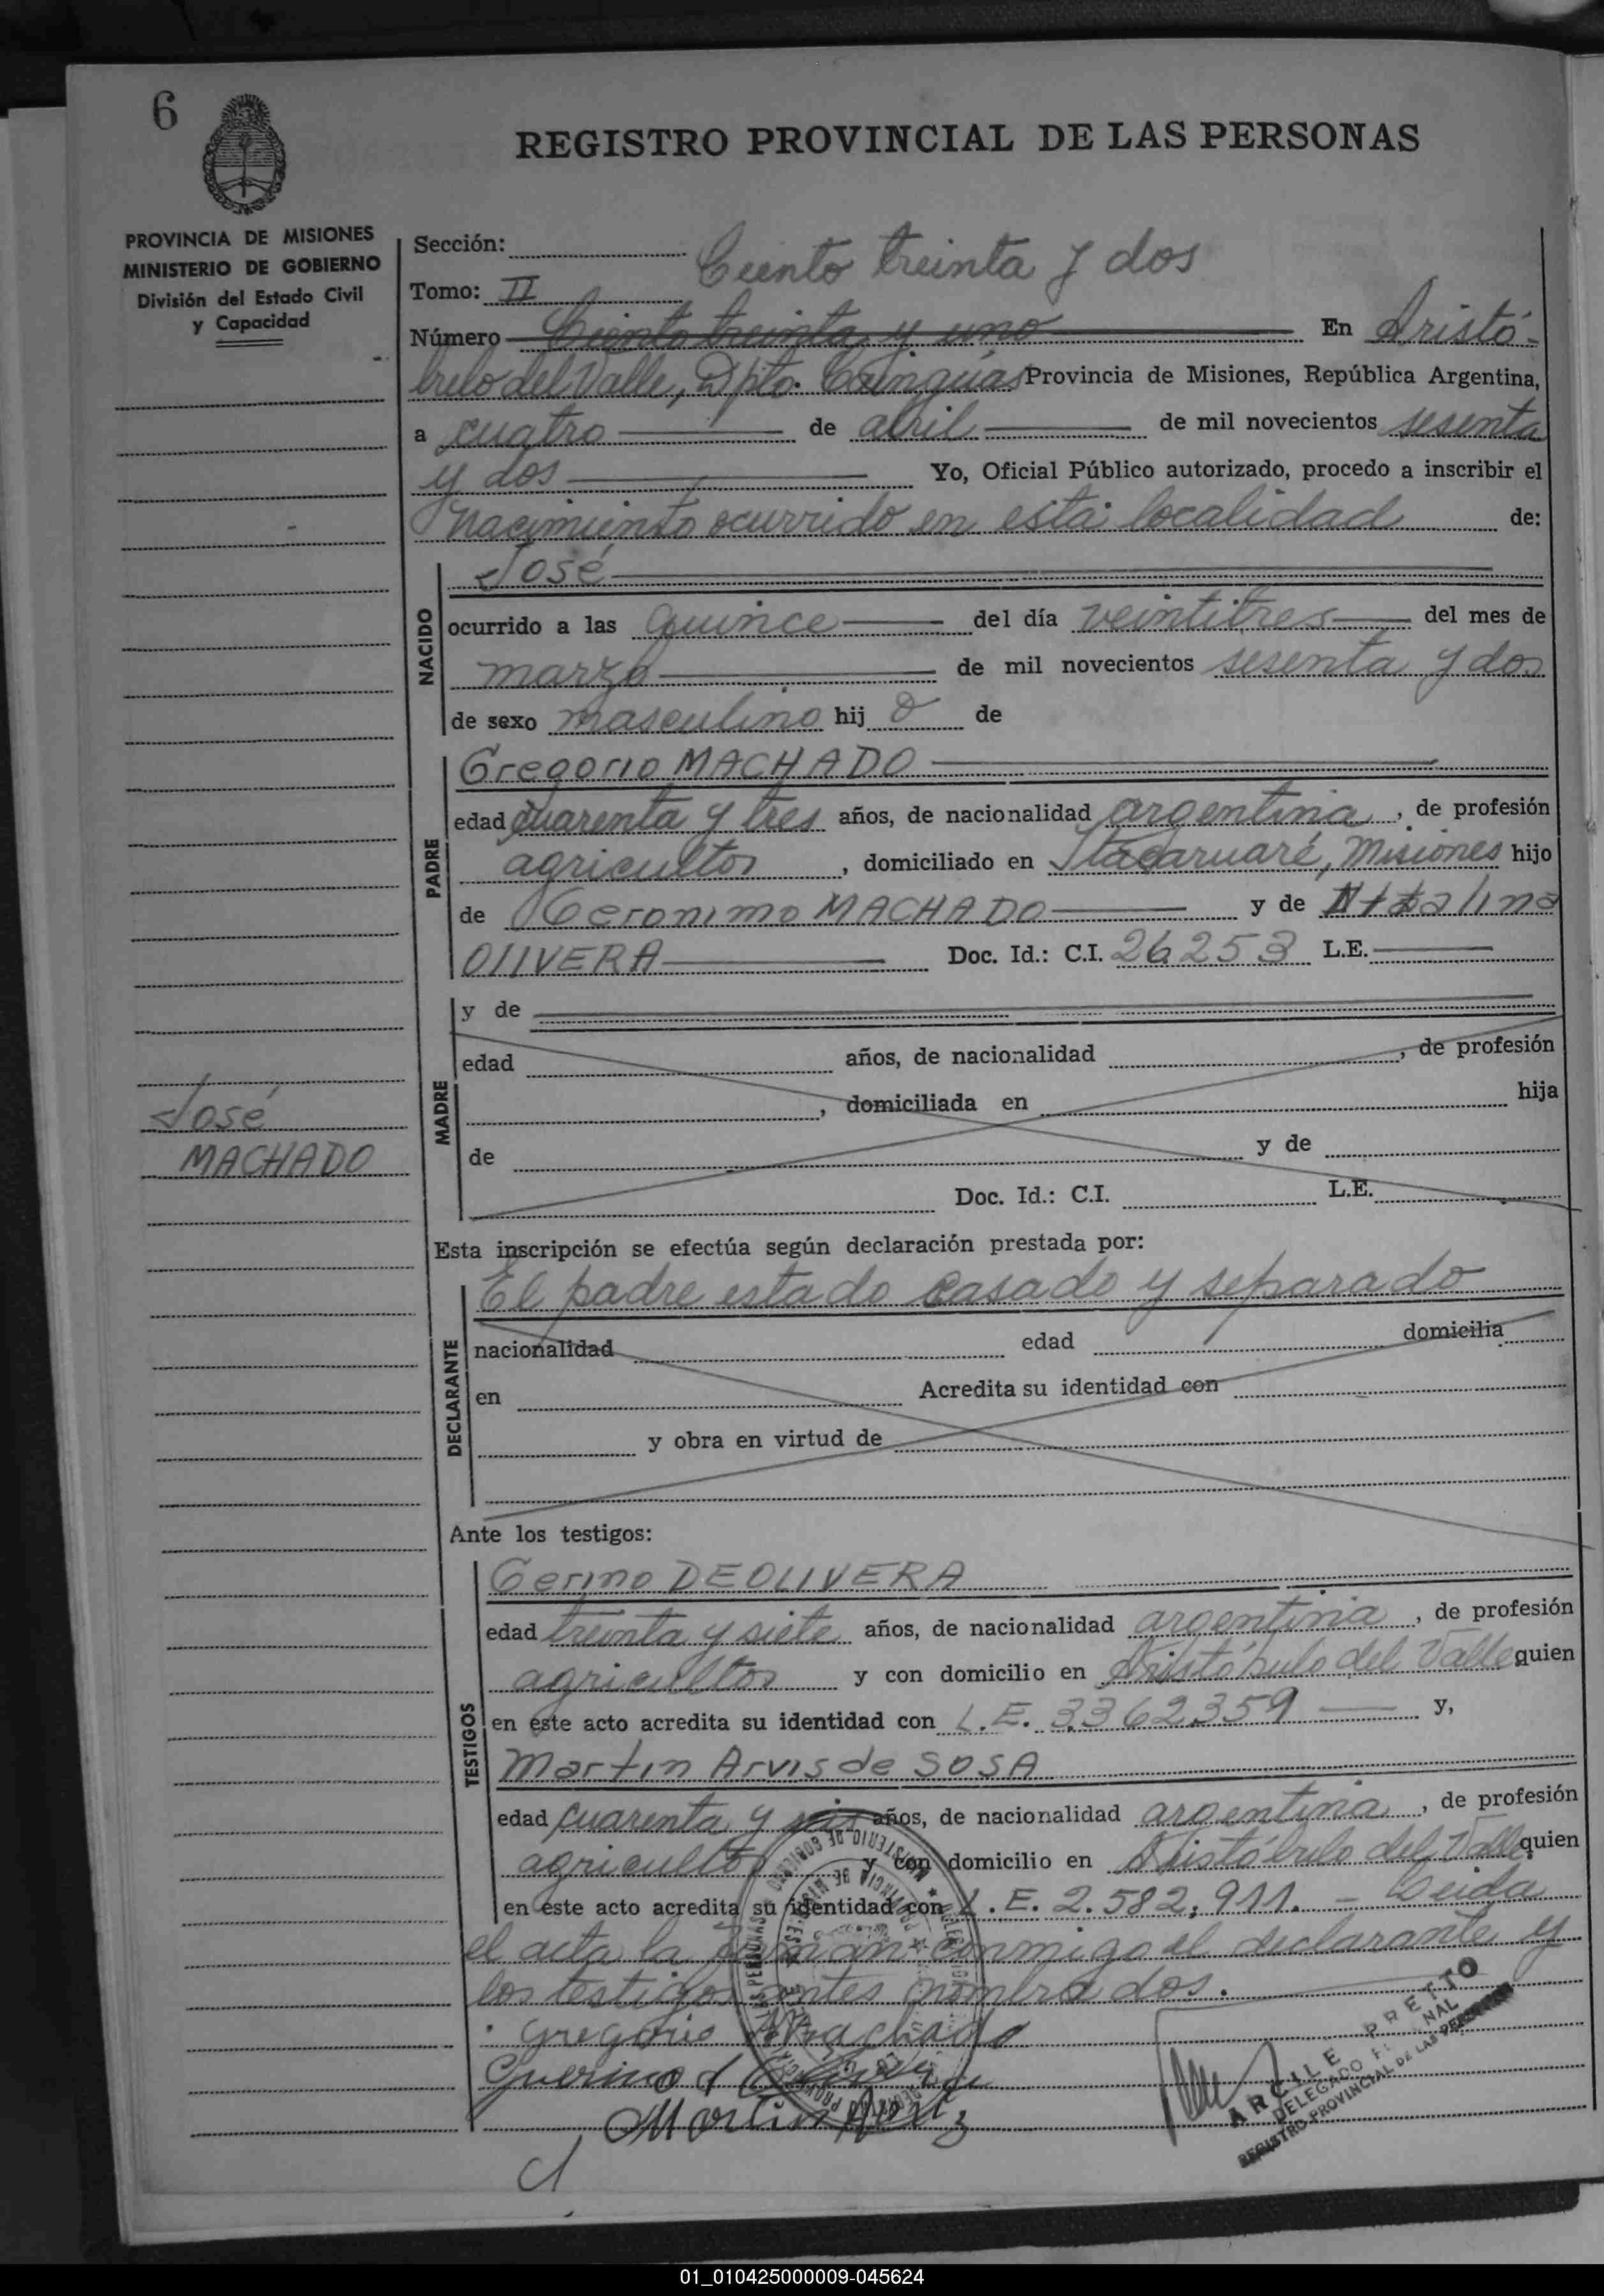 6
REGISTRO PROVINCIAL DE LAS PERSONAS
PROVINCIA DE MISIONES
MINISTERIO DE GOBIERNO
División del Estado Civil
y Capacidad
Sección:
Ciento treinta y dos
Tomo: II
Número Ciento treinta y uno En Aristó-
bulo del Valle, Dpto. Cainguás Provincia de Misiones, República Argentina,
a cuatro de abril de mil novecientos sesenta
y dos Yo, Oficial Público autorizado, procedo a inscribir el
nacimiento ocurrido en esta localidad de:
NACIDO
José
ocurrido a las quince del día veintitres del mes de
marzo de mil novecientos sesenta y dos
de sexo masculino hij o de
PADRE
Gregorio MACHADO
edad cuarenta y tres años, de nacionalidad argentina, de profesión
agricultor, domiciliado en Itacaruaré, Misiones hijo
de Geronimo MACHADO y de
OLIVERA Doc. Id.: C.I. 26253 L.E.
MADRE
y de
edad años, de nacionalidad , de profesión
, domiciliada en hija
de y de
Doc. Id.: C.I. L.E.
José
MACHADO
Esta inscripción se efectúa según declaración prestada por:
DECLARANTE
El padre estado casado y separado
nacionalidad edad domicilia
en Acredita su identidad con
y obra en virtud de
Ante los testigos:
TESTIGOS
Gerino DEOLIVERA
edad treinta y siete años, de nacionalidad argentina, de profesión
agricultor y con domicilio en Aristóbulo del Valle quien
en este acto acredita su identidad con L.E. 3362359 y,
Martin Arvis de SOSA
edad cuarenta y seis años, de nacionalidad argentina, de profesión
agricultor y con domicilio en Aristóbulo del Valle quien
en este acto acredita su identidad con L.E. 2.582,911. - Leida
el acta la firman conmigo el declarante y
los testigos antes nombrados.
Gregorio Machado
Guerino d
Martin
ARCILE PRETTO
DELEGADO
REGISTRO PROVINCIAL DE LAS PERSONAS
01_010425000009-045624